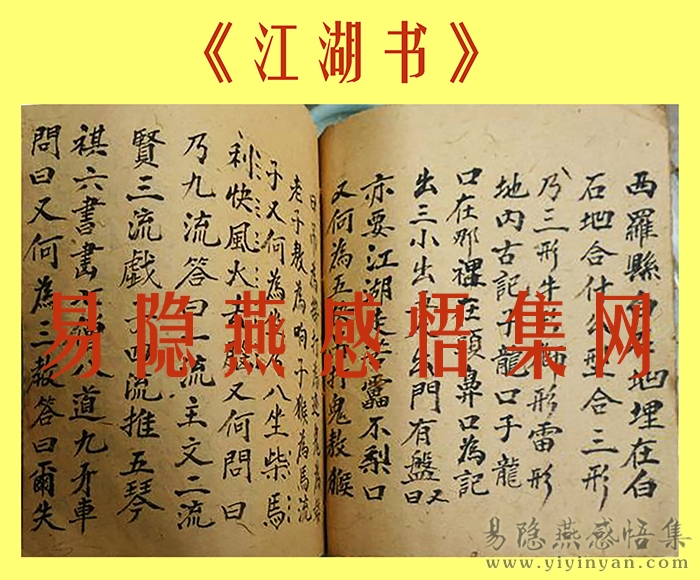 《江湖书》
西羅縣地埋在白
石地合什型合三形
乃三形牛形形雷形
地内古記子龍口手龍
口在那裡在頭鼻口為記
出三小出出門有盤又曰
亦耍江湖苦不梨口
又何為五打鬼教猴
老子教為响子猴為馬流
子又何為八坐柴馬
利快風火又何問曰
乃九流答曰一流主文二流
賢三流戲四流推五琴
祺六書畫八道九车
問曰又何為三教答曰爾失
易隐燕感悟集网
易隐燕感悟集
www.yiyinyan.com